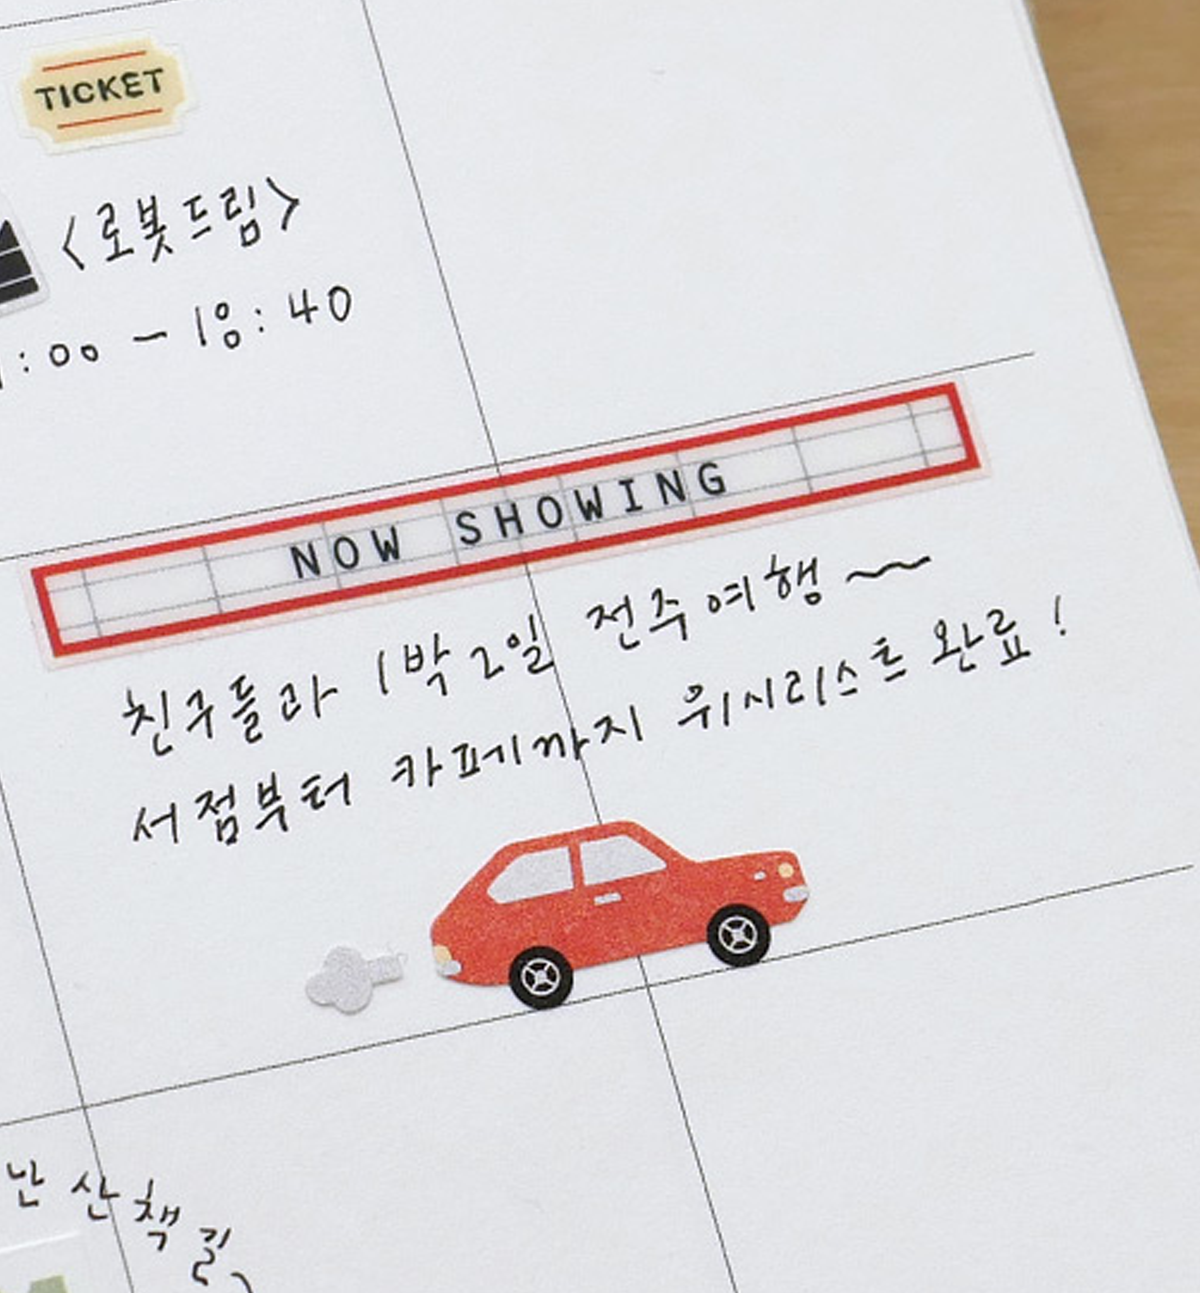 TICKET
<로봇드림>
:00 - 18:40
NOW SHOWING
친구들과 1박2일 전주여행~
서점부터 카페까지 위시리스트 완료!
난 산책길